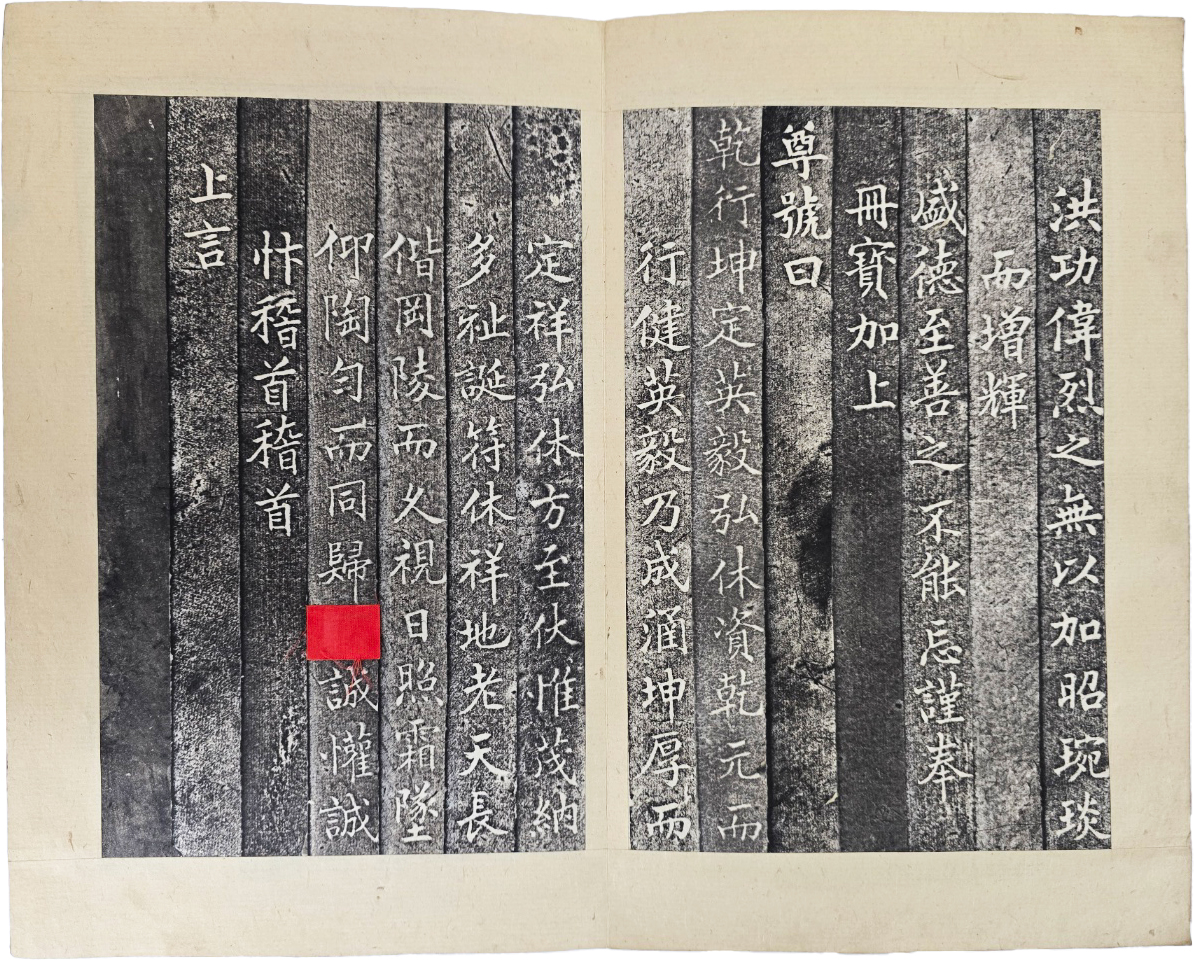 洪功偉烈之無以加昭琬琰
而增輝
盛德至善之不能忘謹奉
冊寶加上
尊號曰
乾行坤定英毅弘休資乾元而
行健英毅乃成涵坤厚而
定祥弘休方至伏惟茂納
多祉誕符休祥地老天長
偕岡陵而久視日照霜墜
仰陶勻而同歸 誠懽誠
忭稽首稽首
上言